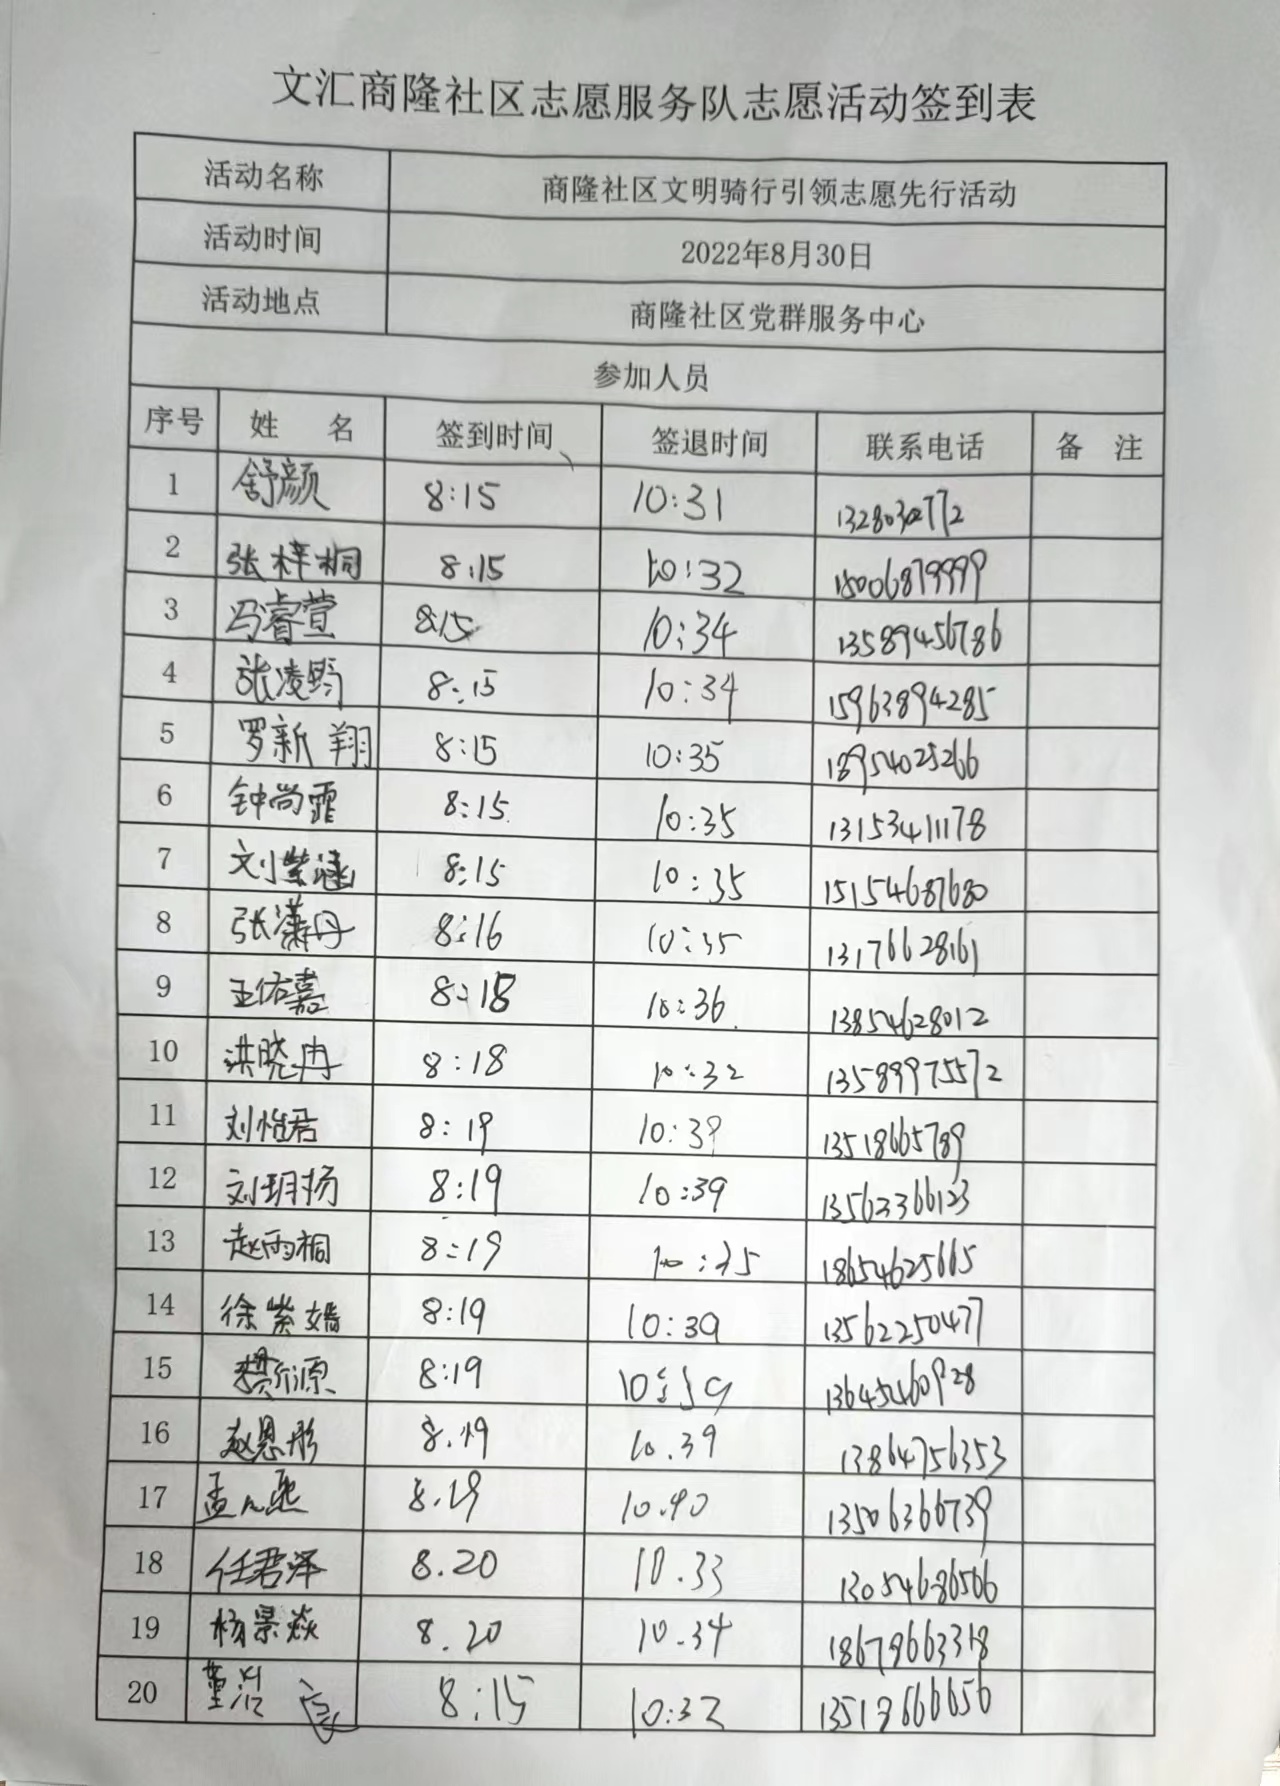 文汇商隆社区志愿服务队志愿活动签到表
活动名称 商隆社区文明骑行引领志愿先行活动
活动时间 2022年8月30日
活动地点 商隆社区党群服务中心
参加人员
序号 姓 名 签到时间 签退时间 联系电话 备 注
1 舒颜 8:15 10:31
2 张梓桐 8:15 10:32 15006879999
3 冯睿萱 8:15 10:34 13589456786
4 张凌 8:15 10:34 15963894285
5 罗新翔 8:15 10:35 18954025266
6 钟尚霏 8:15 10:35 13153411178
7 刘紫涵 8:15 10:35 15154687680
8 张潇丹 8:16 10:35 13176628161
9 王佑嘉 8:18 10:36 13854628012
10 洪晓冉 8:18 10:32 13589975572
11 刘怡君 8:19 10:39 13518665789
12 刘玥扬 8:19 10:39 13563366123
13 赵雨桐 8:19 10:35 18654625665
14 徐紫嫣 8:19 10:39 13562250477
15 8:19 13645460928
16 赵恩彤 8.19 10.39 13864756353
17 孟凡 8.19 10.40 13506366739
18 任君泽 8.20 10.33 13054686566
19 杨景焱 8.20 10.34 18678663318
20 董 8:15 10:32